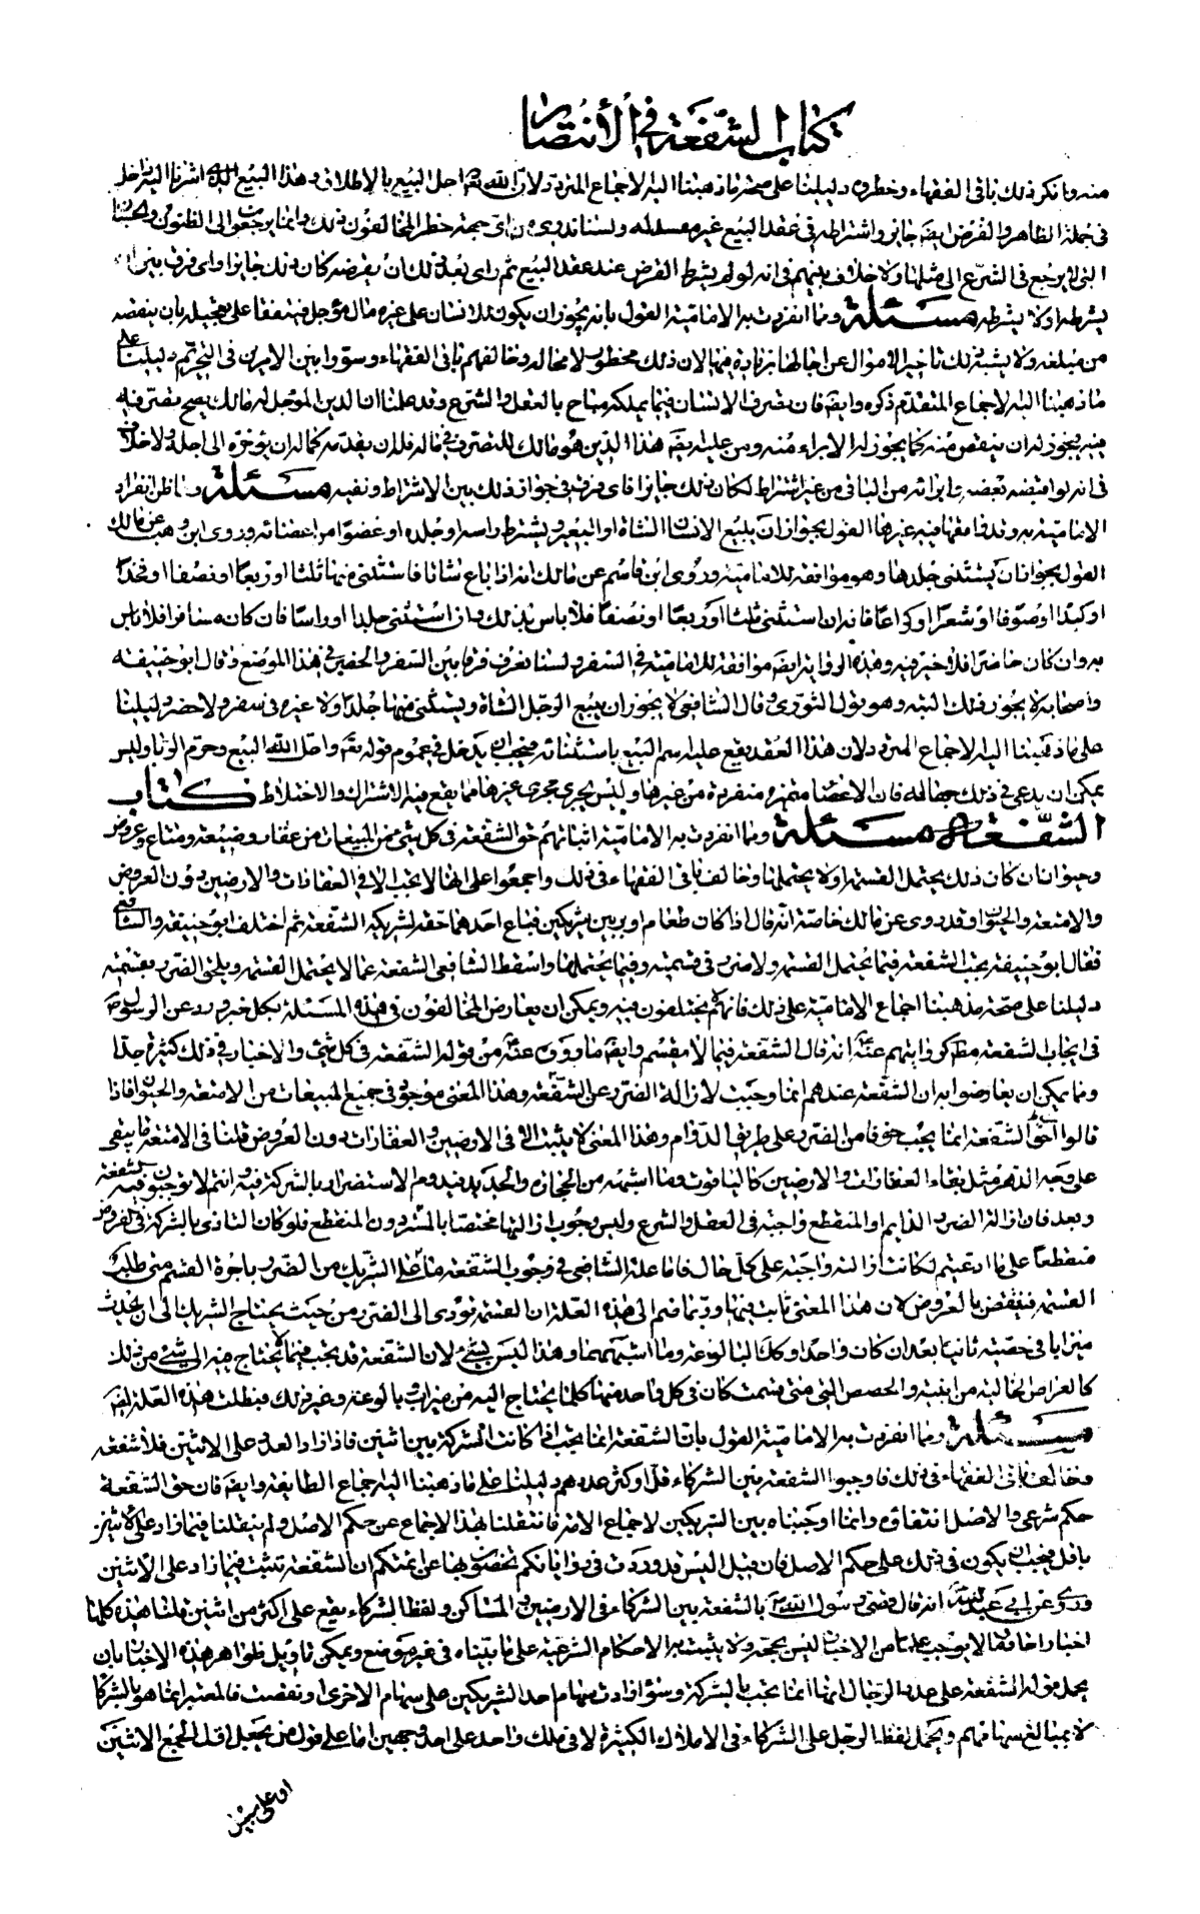 كتاب الشفعة في الأنتصار
منه وانكر ذلك باقي الفقهاء وخطروه دليلنا على صحة ما ذهبنا اليه الاجماع المتردد ولان الله تعالى احل البيع بالاطلاق وهذا البيع الذي اشرنا اليه داخل
في جملة الظاهر والقرض ايضا جايز واشتراطه في عقد البيع غير مفسد له ولسنا ندري من اي جهة حظر المخالفون ذلك وانما يرجعون الى الظنون والحسبان
التي لا يرجع في الشرع الى مثلها ولا خلاف بينهم في انه لو لم يشرط القرض عند عقد البيع ثم راى بعد ذلك ان يقرضه كان ذلك جايزا واي فرق بين ان
يشرطه او لا يشرطه مسئلة ومما انفردت به الامامية القول بانه يجوز ان يكون للانسان على غيره مال مؤجل فيتفقا على تعجيله بان ينقصه
من مبلغه ولا يشبه ذلك تاخير الاموال عن اجالها بزيادة فيها لان ذلك محظور لا محالة وخالفهم باقي الفقهاء وسووا بين الامرين في التحريم دليلنا على
ما ذهبنا اليه الاجماع المتقدم ذكره وايضا فان تصرف الانسان فيما يملكه مباح بالعقل والشرع وقد علمنا ان الدين المؤجل له مالك يصح تصرفه
فيه يجوز له ان ينقص منه كما يجوز له الابراء منه ومن عليه ايضا هذا الدين هو مالك للتصرف في ماله فله ان يقدمه كما له ان يؤخره الى اجله ولا خلاف
في انه لو اقبضه بعضه وابرائه من الباقي من غير اشتراط لكان ذلك جايزا فاي فرق في جواز ذلك بين الاشتراط ونفيه مسئلة ومما ظن انفراد
الامامية به وقد وافقها فيه غيرها القول بجواز ان يبيع الانسان الشاة او البعير ويشترط راسه او جلده او عضوا من اعضائه وروى ابن وهب عن مالك
القول بجواز ان يستثني جلدها وهو موافقة للامامية وروى ابن قاسم عن مالك انه اذا باع شاتا فاستثنى منها ثلثا او ربعا او نصفا او فخذا
او كبدا او صوفا او شعرا او كراعا فانه ان استثنى ثلثا او ربعا او نصفا فلا باس بذلك وان استثنى جلدا او راسا فان كان مسافرا فلا باس
به وان كان حاضرا فلا خير فيه وهذه الرواية ايضا موافقة للامامية في السفر ولسنا نعرف فرقا بين السفر والحضر في هذا الموضع وقال ابو حنيفة
واصحابه لا يجوز ذلك البته وهو قول الثوري وقال الشافعي لا يجوز ان يبيع الرجل الشاة ويستثني منها جلدا ولا غيره في سفر ولا حضر دليلنا
على ما ذهبنا اليه الاجماع المتردد ولان هذا العقد يقع عليه اسم البيع باستثنائه فيجب ان يدخل في عموم قوله تعالى واحل الله البيع وحرم الربا وليس
يمكن ان يدعي في ذلك جهالة فان الاعضاء متميزة منفردة من غيرها وليس يجري مجرى غيرها مما يقع فيه الاشتراك والاختلاط كتاب
الشفعة مسئلة ومما انفردت به الامامية اثباتهم حق الشفعة في كل شئ من المبيعات من عقار وضيعة ومتاع وعروض
وحيوان ان كان ذلك يحتمل القسمة او لا يحتملها وخالف باقي الفقهاء في ذلك واجمعوا على انها لا تجب الا في العقارات والارضين دون العروض
والامتعة والحيوان وقد روى عن مالك خاصة انه قال اذا كان طعام او بر بين شريكين فباع احدهما حصة لشريكه الشفعة ثم اختلف ابو حنيفة والشافعي
فقال ابو حنيفة تجب الشفعة فيما يحتمل القسمة ولا ضرر في قسمته وفيما يحتملها واسقط الشافعي الشفعة عما لا يحتمل القسمة ويلحق الضرر بقسمته
دليلنا على صحة مذهبنا اجماع الامامية على ذلك فانهم لا يختلفون فيه ويمكن ان يعارض المخالفون في هذه المسئلة بكل خبر ورد عن الرسول ص
في ايجاب الشفعة مطلقا كروايتهم عنه انه قال الشفعة فيما لا يقسم وايضا ما روي عنه من قوله الشفعة في كل شئ والاخبار في ذلك كثيرة جدا
ومما يمكن ان يعارضوا به ان الشفعة عندهم انما وجبت لازالة الضرر عن الشفعة وهذا المعنى موجود في جميع المبيعات من الامتعة والحيوان فاذا
قالوا حق الشفعة انما يجب خوفا من الضرر على طريق الدوام وهذا المعنى لا يثبت الا في الارضين والعقارات دون العروض قلنا في الامتعة ما يبقى
على وجه الدهر مثل بقاء العقارات والارضين كالياقوت وما اشبهه من الحجارة والحديد فيدوم الاستضرار بالشركة فيه وانتم لا توجبون فيه الشفعة
وبعد فان ازالة الضرر الدايم او المنقطع واجبة في العقل والشرع وليس وجوب ازالتها مختصا بالمستمر دون المنقطع فلو كان التاذي بالشركة في العروض
منقطعا على ما ادعيتم لكانت ازالته واجبة على كل حال فاما علة الشافعي في وجوب الشفعة ما على الشريك من الضرر باجرة القسم متى طلبت
القسمة فينقض بالعروض لان هذا المعنى ثابت فيها وربما ضم الى هذه العلة ان القسمة تؤدي الى الضرر من حيث يحتاج الشريك الى ان يحدث
ميزابا في حصته ثانيا بعد ان كان واحدا وكك البالوعة وما اشبههما وهذا ليس بشئ لان الشفعة قد تجب فيما لا يحتاج فيه الى شئ من ذلك
كالعراص الخالية من ابنية والحصص التي متى قسمت كان في كل واحد منها كلما يحتاج اليه من ميزاب وبالوعة وغير ذلك فبطلت هذه العلة ايضا
مسئلة ومما انفردت به الامامية القول بان الشفعة انما يجب اذا كانت الشركة بين اثنين فاذا زاد العدد على الاثنين فلا شفعة
وخالف باقي الفقهاء في ذلك فاوجبوا الشفعة بين الشركاء قل او كثر عددهم دليلنا على ما ذهبنا اليه اجماع الطايفة وايضا فان حق الشفعة
حكم شرعي والاصل انتفاؤه وانما اوجبناه بين الشريكين لاجماع الامة فانتقلنا بهذا الاجماع عن حكم الاصل ولم ينقلنا فيما زاد على الاثنين
ناقل فيجب ان يكون في ذلك على حكم الاصل فان قيل اليس قد وردت في رواياتكم تخصون بها عن ائمتكم ان الشفعة تثبت فيما زاد على الاثنين
وروي عن ابي عبد الله انه قال قضى رسول الله بالشفعة بين الشركاء في الارضين والمساكن ولفظ الشركاء يقع على اكثر من اثنين قلنا هذه كلها
اخبار احاد وما لا يوجب علما من الاخبار ليس بحجة ولا يثبت به الاحكام الشرعية على ما بيناه في غير موضع ويمكن تاويل ظواهر هذه الاخبار بان
يحمل قوله الشفعة على عدد الرجال انها انما تجب بالشركة وسواء زادت سهام احد الشريكين على سهام الاخرى او نقصت فالمعتبر انما هو بالشركا
لا بمبالغ سهامهم ويحمل لفظ الرجل على الشركاء في الاملاك الكثيرة لا في ملك واحد على احد وجهين اما على قول من يجعل اقل الجمع الاثنين
او على سبيل